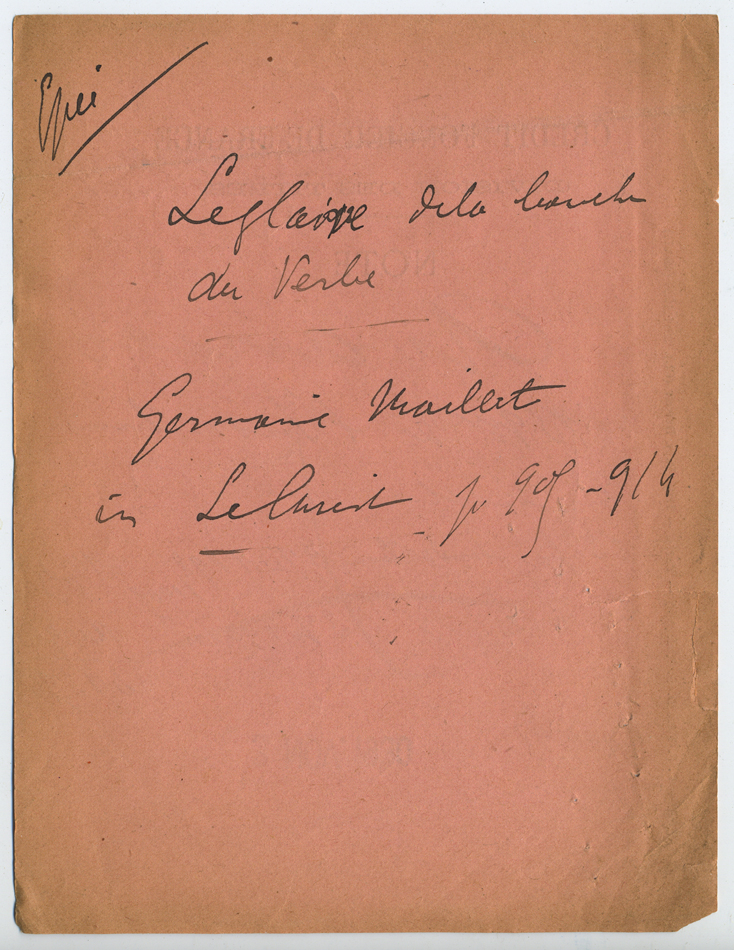 Epée
Le glaive de la bouche
du Verbe
Germaine Maillet
in Le Christ p 905 - 914